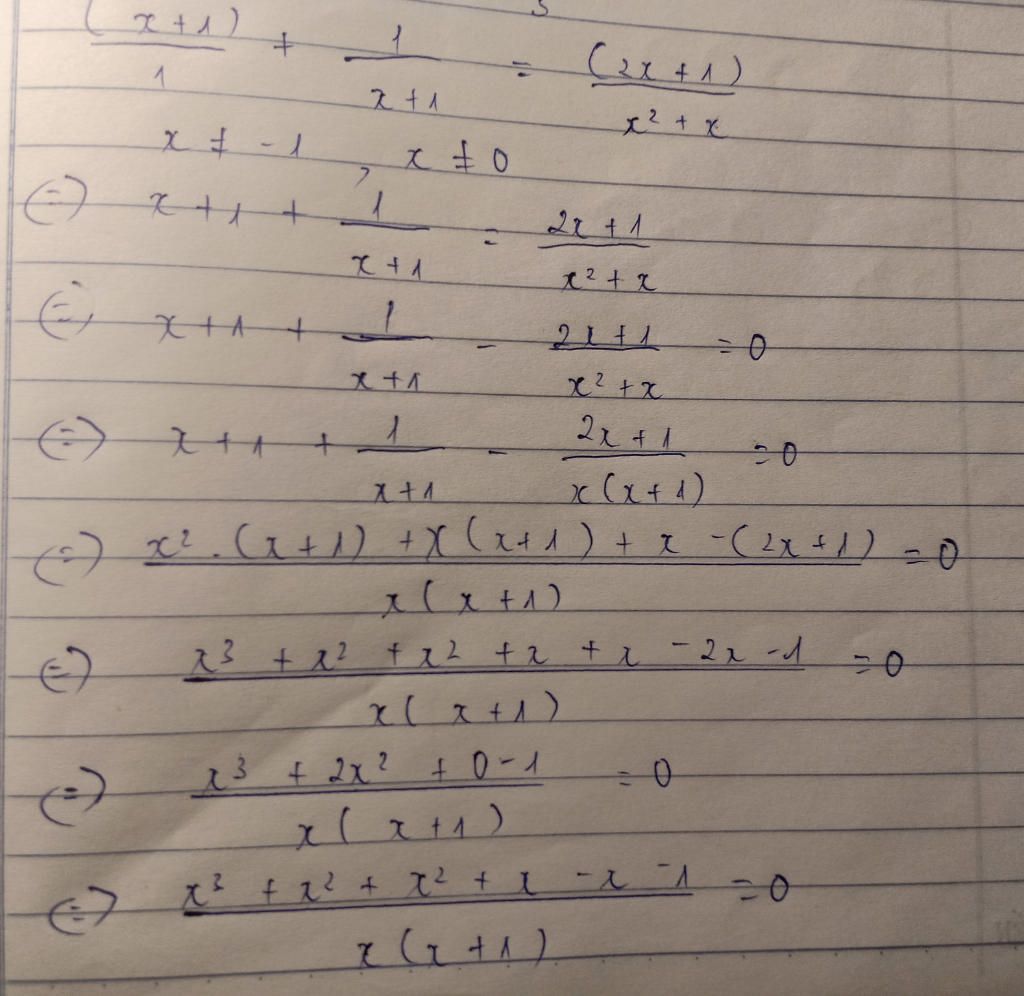 (x+1)/1 + 1/(x+1) = (2x+1)/(x² + x)
x ≠ -1 , x ≠ 0
(=) x + 1 + 1/(x+1) = (2x+1)/(x² + x)
(=) x + 1 + 1/(x+1) - (2x+1)/(x² + x) = 0
(=) x + 1 + 1/(x+1) - (2x+1)/(x(x+1)) = 0
(=) (x² . (x+1) + x(x+1) + x - (2x+1))/(x(x+1)) = 0
(=) (x³ + x² + x² + x + x - 2x - 1)/(x(x+1)) = 0
(=) (x³ + 2x² + 0 - 1)/(x(x+1)) = 0
(=) (x³ + x² + x² + x - x - 1)/(x(x+1)) = 0